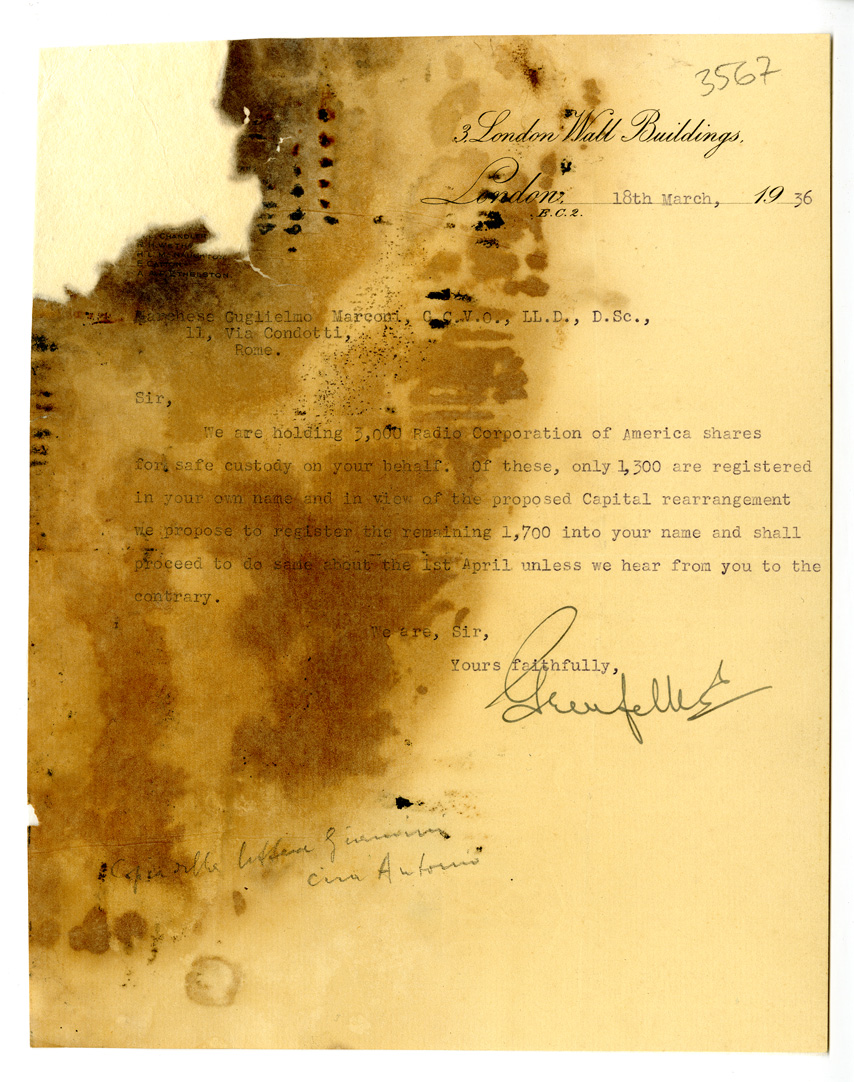 3567
3, London Wall Buildings,
London, 18th March, 19 36
E.C.2.
Marchese Guglielmo Marconi, G.C.V.O., LL.D., D.Sc.,
11, Via Condotti,
Rome.
Sir,
We are holding 3,000 Radio Corporation of America shares
for safe custody on your behalf. Of these, only 1,300 are registered
in your own name and in view of the proposed Capital rearrangement
we propose to register the remaining 1,700 into your name and shall
proceed to do same about the 1st April unless we hear from you to the
contrary.
We are, Sir,
Yours faithfully,
Copia della lettera
Antonio